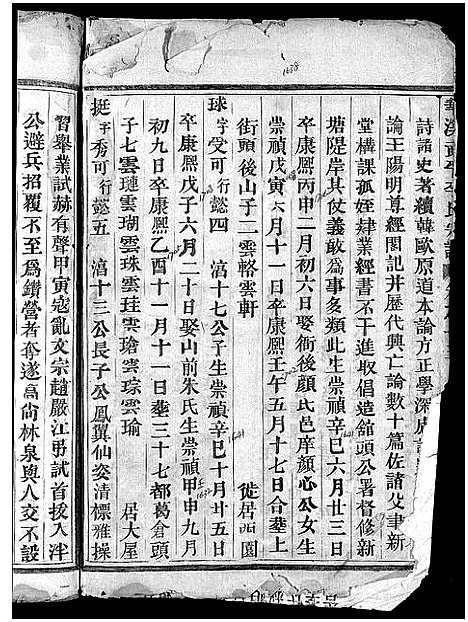 詩話史著續韓歐原道本論方正學深慮
論王陽明尊經閣記并歷代興亡論數十篇佐諸父聿新
堂構課孤姪肆業經書不干進取倡造舘頭公署督修新
塘隄岸其仗義敢為事多類此生崇禎辛巳六月廿三日
卒康熙丙申二月初六日娶衙後顏氏邑庠顏心公女生
崇禎戊寅六月十一日卒康熙壬午五月十七日合塟上
街頭後山子二雲輅雲軒 徙居西園
球 字受可行懿四 滔十七公子生崇禎辛巳十月廿五日
卒康熙戊子六月二十日娶山前朱氏生崇禎甲申九月
初九日卒康熙乙酉十一月十一日塟三十七都葛倉頭
子七雲璉雲瑚雲珠雲珪雲瑲雲琮雲瑜 居大屋
挺 字秀可行懿五 滔十三公長子公鳳翼仙姿清標雅操
習舉業試赫有聲甲寅寇亂文宗趙嚴江弔試首拔入泮
公避兵招覆不至為鑽營者奪遂高尚林泉與人交不設